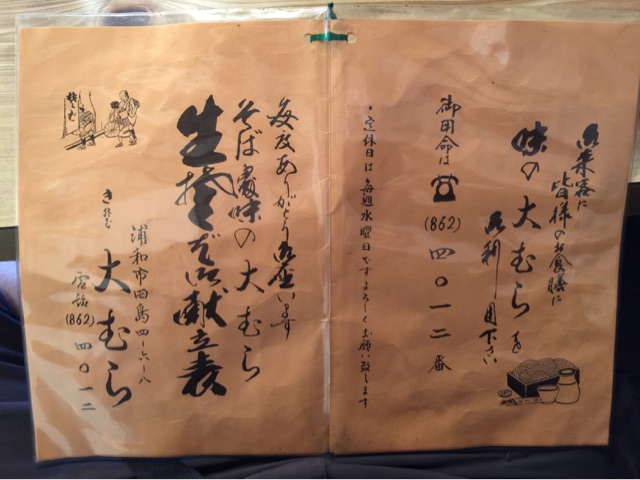 御来客に
皆様のお食膳に
味の大むらを
御利用下さい
御用命は☎(862)四〇一二番
・定休日は毎週水曜日ですよろしくお願い致します
毎度ありがとう御座います
そば賞味の大むら
生そば御献立表
大むら
浦和市田島四-六-八
電話(862)四〇一二